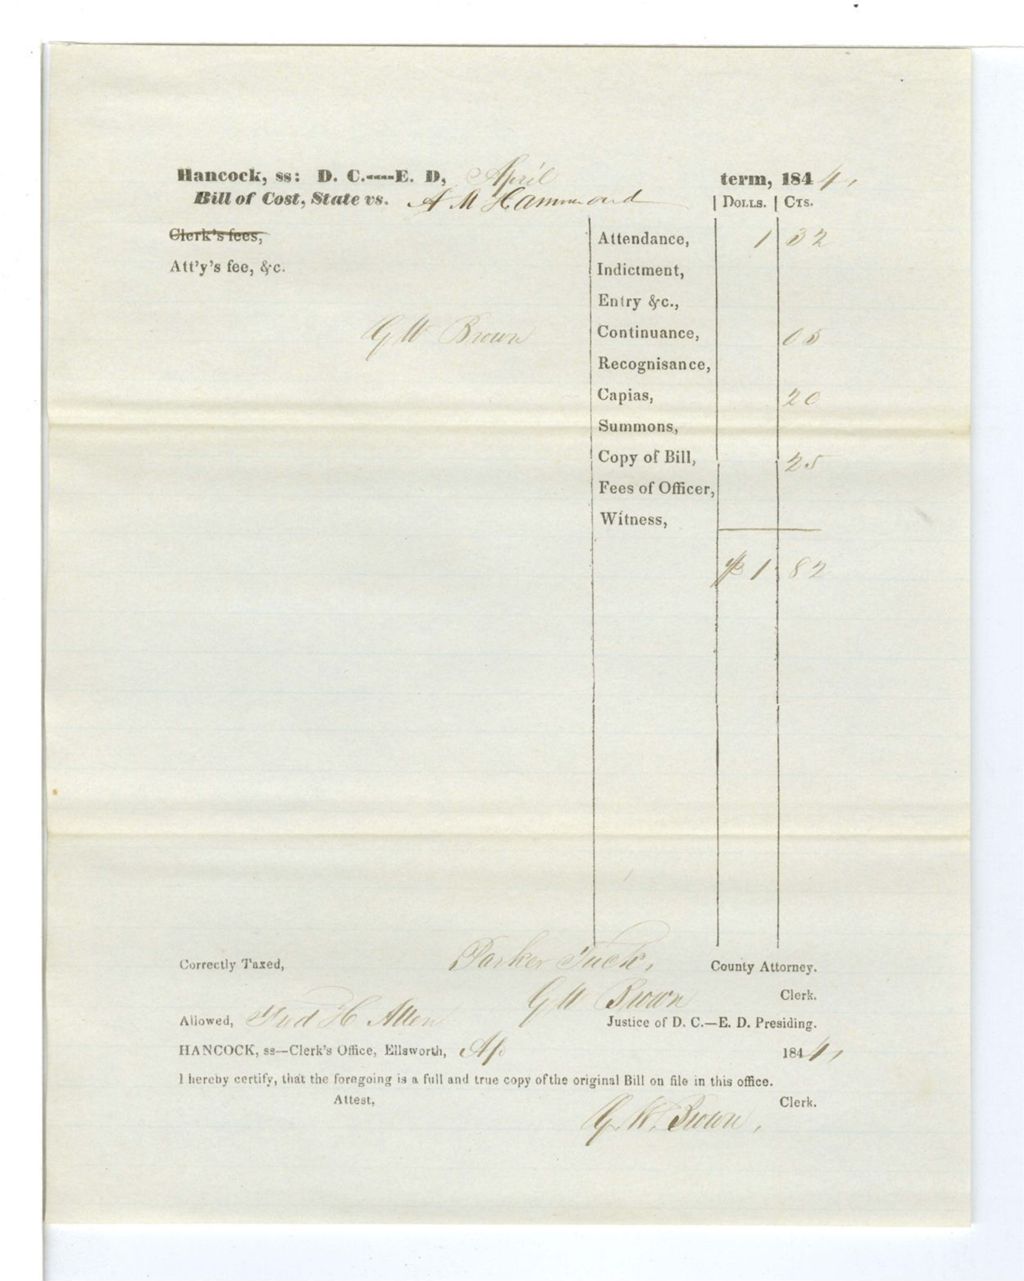 Hancock, ss: D. C.----E. D, April term, 1844,
Bill of Cost, State vs. A M Hammond | Dolls. | Cts.
Clerk's fees, Attendance, 1 32
Att'y's fee, &c. Indictment,
Entry &c.,
G W Brown Continuance, 05
Recognisance,
Capias, 20
Summons,
Copy of Bill, 25
Fees of Officer,
Witness,
$ 1 82
Correctly Taxed, Parker Tuck, County Attorney.
G W Brown Clerk.
Allowed, Fred H Allen Justice of D. C.—E. D. Presiding.
HANCOCK, ss—Clerk's Office, Ellsworth, Ap 1844,
I hereby certify, that the foregoing is a full and true copy of the original Bill on file in this office.
Attest, Clerk.
G. W. Brown,